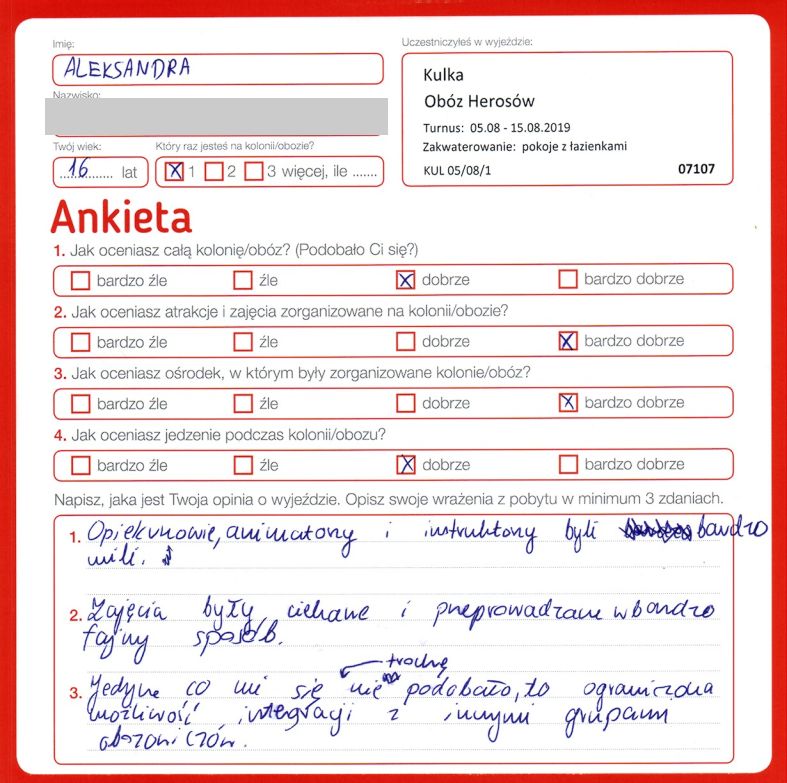 Imię:
ALEKSANDRA
Nazwisko:
Twój wiek:
16 lat
Który raz jesteś na kolonii/obozie?
X 1 2 3 więcej, ile .......
Uczestniczyłeś w wyjeździe:
Kulka
Obóz Herosów
Turnus: 05.08 - 15.08.2019
Zakwaterowanie: pokoje z łazienkami
KUL 05/08/1 07107
Ankieta
1. Jak oceniasz całą kolonię/obóz? (Podobało Ci się?)
bardzo źle źle X dobrze bardzo dobrze
2. Jak oceniasz atrakcje i zajęcia zorganizowane na kolonii/obozie?
bardzo źle źle dobrze X bardzo dobrze
3. Jak oceniasz ośrodek, w którym były zorganizowane kolonie/obóz?
bardzo źle źle dobrze X bardzo dobrze
4. Jak oceniasz jedzenie podczas kolonii/obozu?
bardzo źle źle X dobrze bardzo dobrze
Napisz, jaka jest Twoja opinia o wyjeździe. Opisz swoje wrażenia z pobytu w minimum 3 zdaniach.
1. Opiekunowie, animatorzy i instruktorzy byli bardzo
mili.
2. Zajęcia były ciekawe i przeprowadzane w bardzo
fajny sposób.
trochę
3. Jedyne co mi się nie podobało, to ograniczona
możliwość integracji z innymi grupami
obozowiczów.